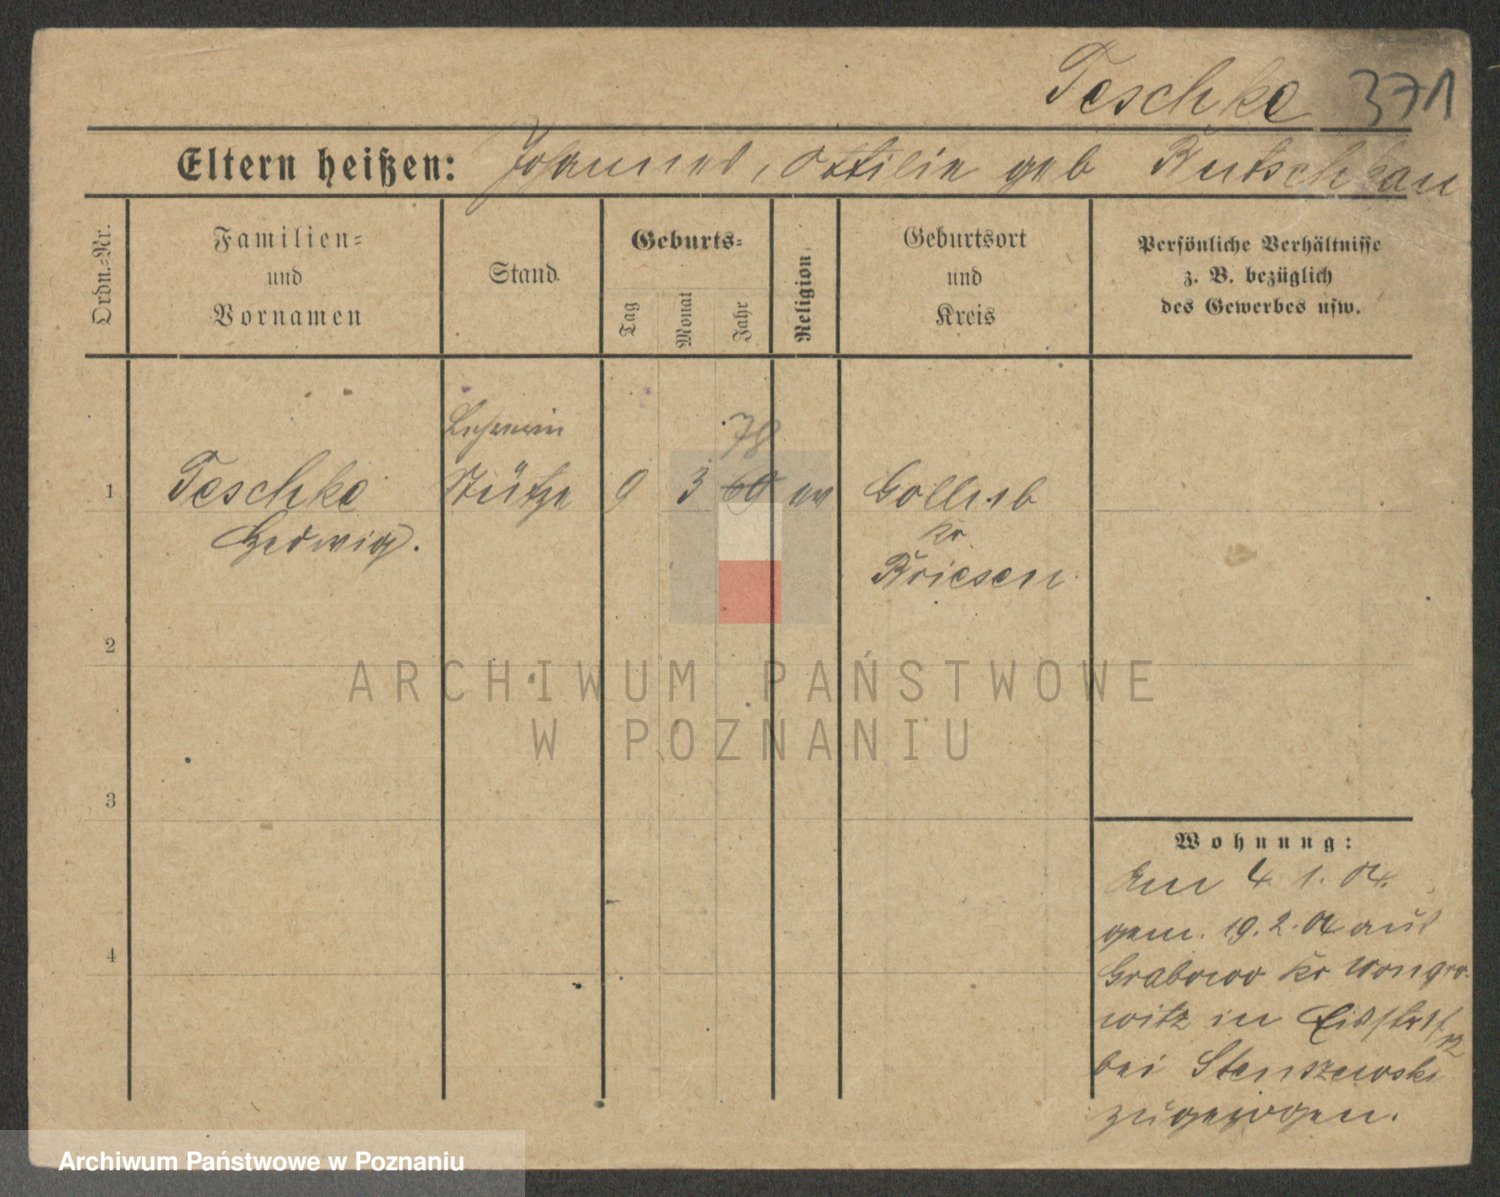 Teschke 371
Eltern heißen: Johannes, Ottilie geb Rutschkau
Ordn.=Nr.
Familien=
und
Vornamen
Stand.
Geburts=
Tag
Monat
Jahr
Religion
Geburtsort
und
Kreis
Persönliche Verhältnisse
z. B. bezüglich
des Gewerbes usw.
78
1 Teschke Stütze 9 3 60 ev Gollub
Hedwig. Kr
Briesen
2
3
4
Wohnung:
Am 4. 1. 04.
gem. 19. 2. 04 aus
Grabowo Kr Wongro-
witz in
bei Stenszewski
zugezogen.
ARCHIWUM PAŃSTWOWE
W POZNANIU
Archiwum Państwowe w Poznaniu